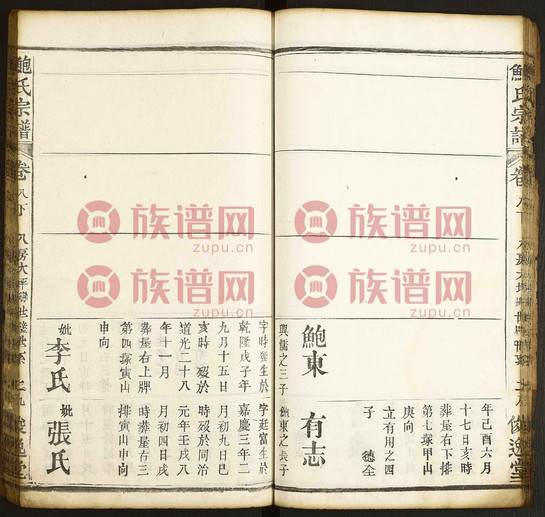 鮑氏宗譜
卷八下
年己酉六月
十七日亥時
葬屋右下排
第七塚甲山
庚向
立有用之四
子 德全
鮑東
興儒之三子
有志
鮑東之長子
字時發生於
乾隆戊子年
九月十五日
亥時 歿於
道光二十八
年十一月
葬屋右上牌
第四塚寅山
申向
妣李氏
字廷富生於
嘉慶三年二
月初九日巳
時歿於同治
元年壬戌八
月初四日戌
時葬屋右三
排寅山申向
妣張氏
鮑氏宗譜
卷八下
族谱网
zupu.cn
族谱网
zupu.cn
族谱网
zupu.cn
族谱网
zupu.cn